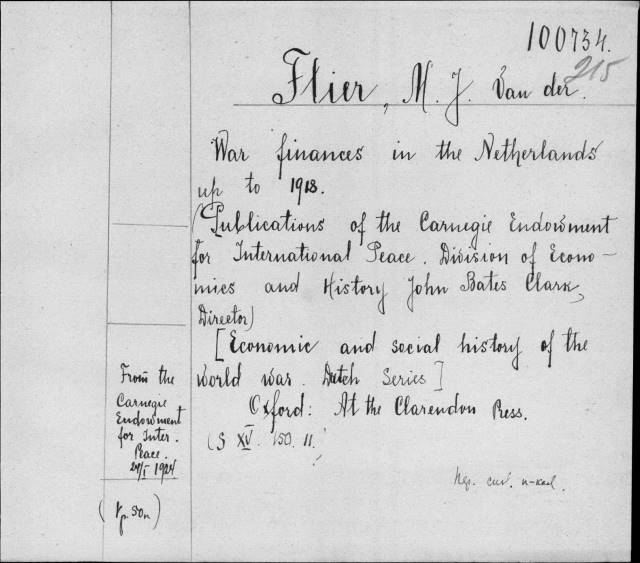 100734.
215
Flier, M. J. Van der.
War finances in the Netherlands
up to 1918.
(Publications of the Carnegie Endowment
for International Peace. Division of Econo-
mics and History John Bates Clark,
Director)
[Economic and social history of the
world war. Dutch Series]
Oxford: At the Clarendon Press.
(S XV. 150. 11.
From the
Carnegie
Endowment
for Inter.
Peace.
1924